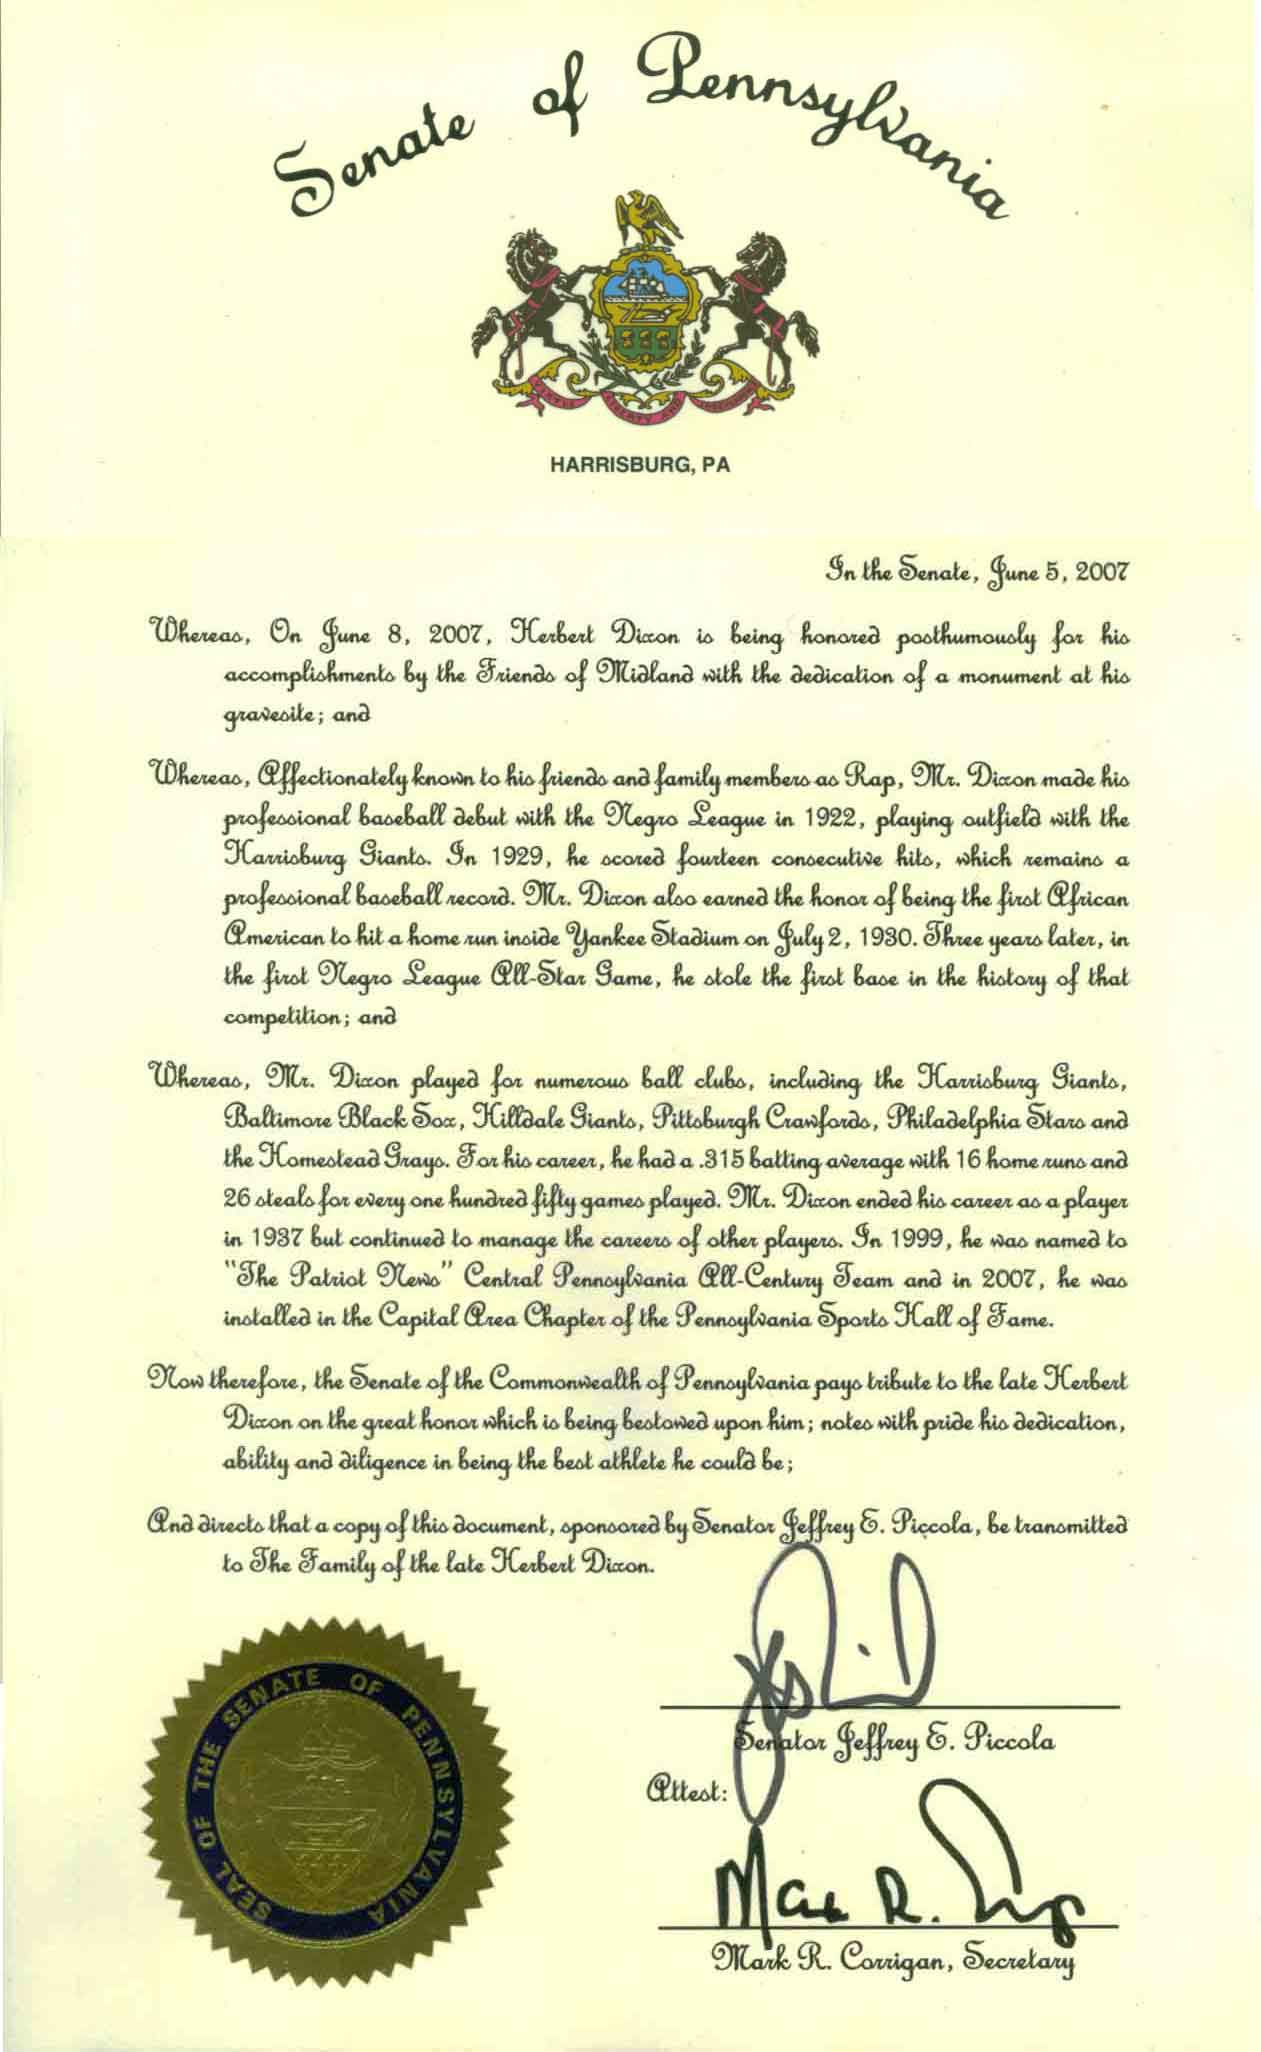 Senate of Pennsylvania
VIRTUE LIBERTY AND INDEPENDENCE
HARRISBURG, PA
In the Senate, June 5, 2007
Whereas, On June 8, 2007, Herbert Dixon is being honored posthumously for his
accomplishments by the Friends of Midland with the dedication of a monument at his
gravesite; and
Whereas, Affectionately known to his friends and family members as Rap, Mr. Dixon made his
professional baseball debut with the Negro League in 1922, playing outfield with the
Harrisburg Giants. In 1929, he scored fourteen consecutive hits, which remains a
professional baseball record. Mr. Dixon also earned the honor of being the first African
American to hit a home run inside Yankee Stadium on July 2, 1930. Three years later, in
the first Negro League All-Star Game, he stole the first base in the history of that
competition; and
Whereas, Mr. Dixon played for numerous ball clubs, including the Harrisburg Giants,
Baltimore Black Sox, Hilldale Giants, Pittsburgh Crawfords, Philadelphia Stars and
the Homestead Grays. For his career, he had a .315 batting average with 16 home runs and
26 steals for every one hundred fifty games played. Mr. Dixon ended his career as a player
in 1937 but continued to manage the careers of other players. In 1999, he was named to
"The Patriot News" Central Pennsylvania All-Century Team and in 2007, he was
installed in the Capital Area Chapter of the Pennsylvania Sports Hall of Fame.
Now therefore, the Senate of the Commonwealth of Pennsylvania pays tribute to the late Herbert
Dixon on the great honor which is being bestowed upon him; notes with pride his dedication,
ability and diligence in being the best athlete he could be;
And directs that a copy of this document, sponsored by Senator Jeffrey E. Piccola, be transmitted
to The Family of the late Herbert Dixon.
SEAL OF THE SENATE OF PENNSYLVANIA
Senator Jeffrey E. Piccola
Attest:
Mark R.
Mark R. Corrigan, Secretary